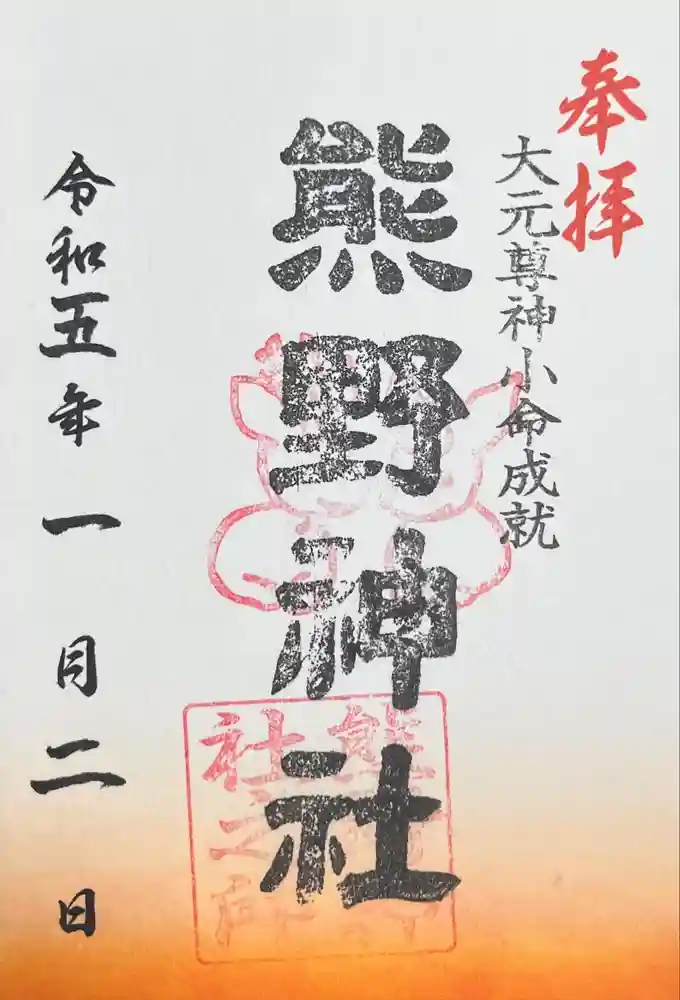 奉拝
大元尊神小命成就
熊野神社
令和五年一月二日